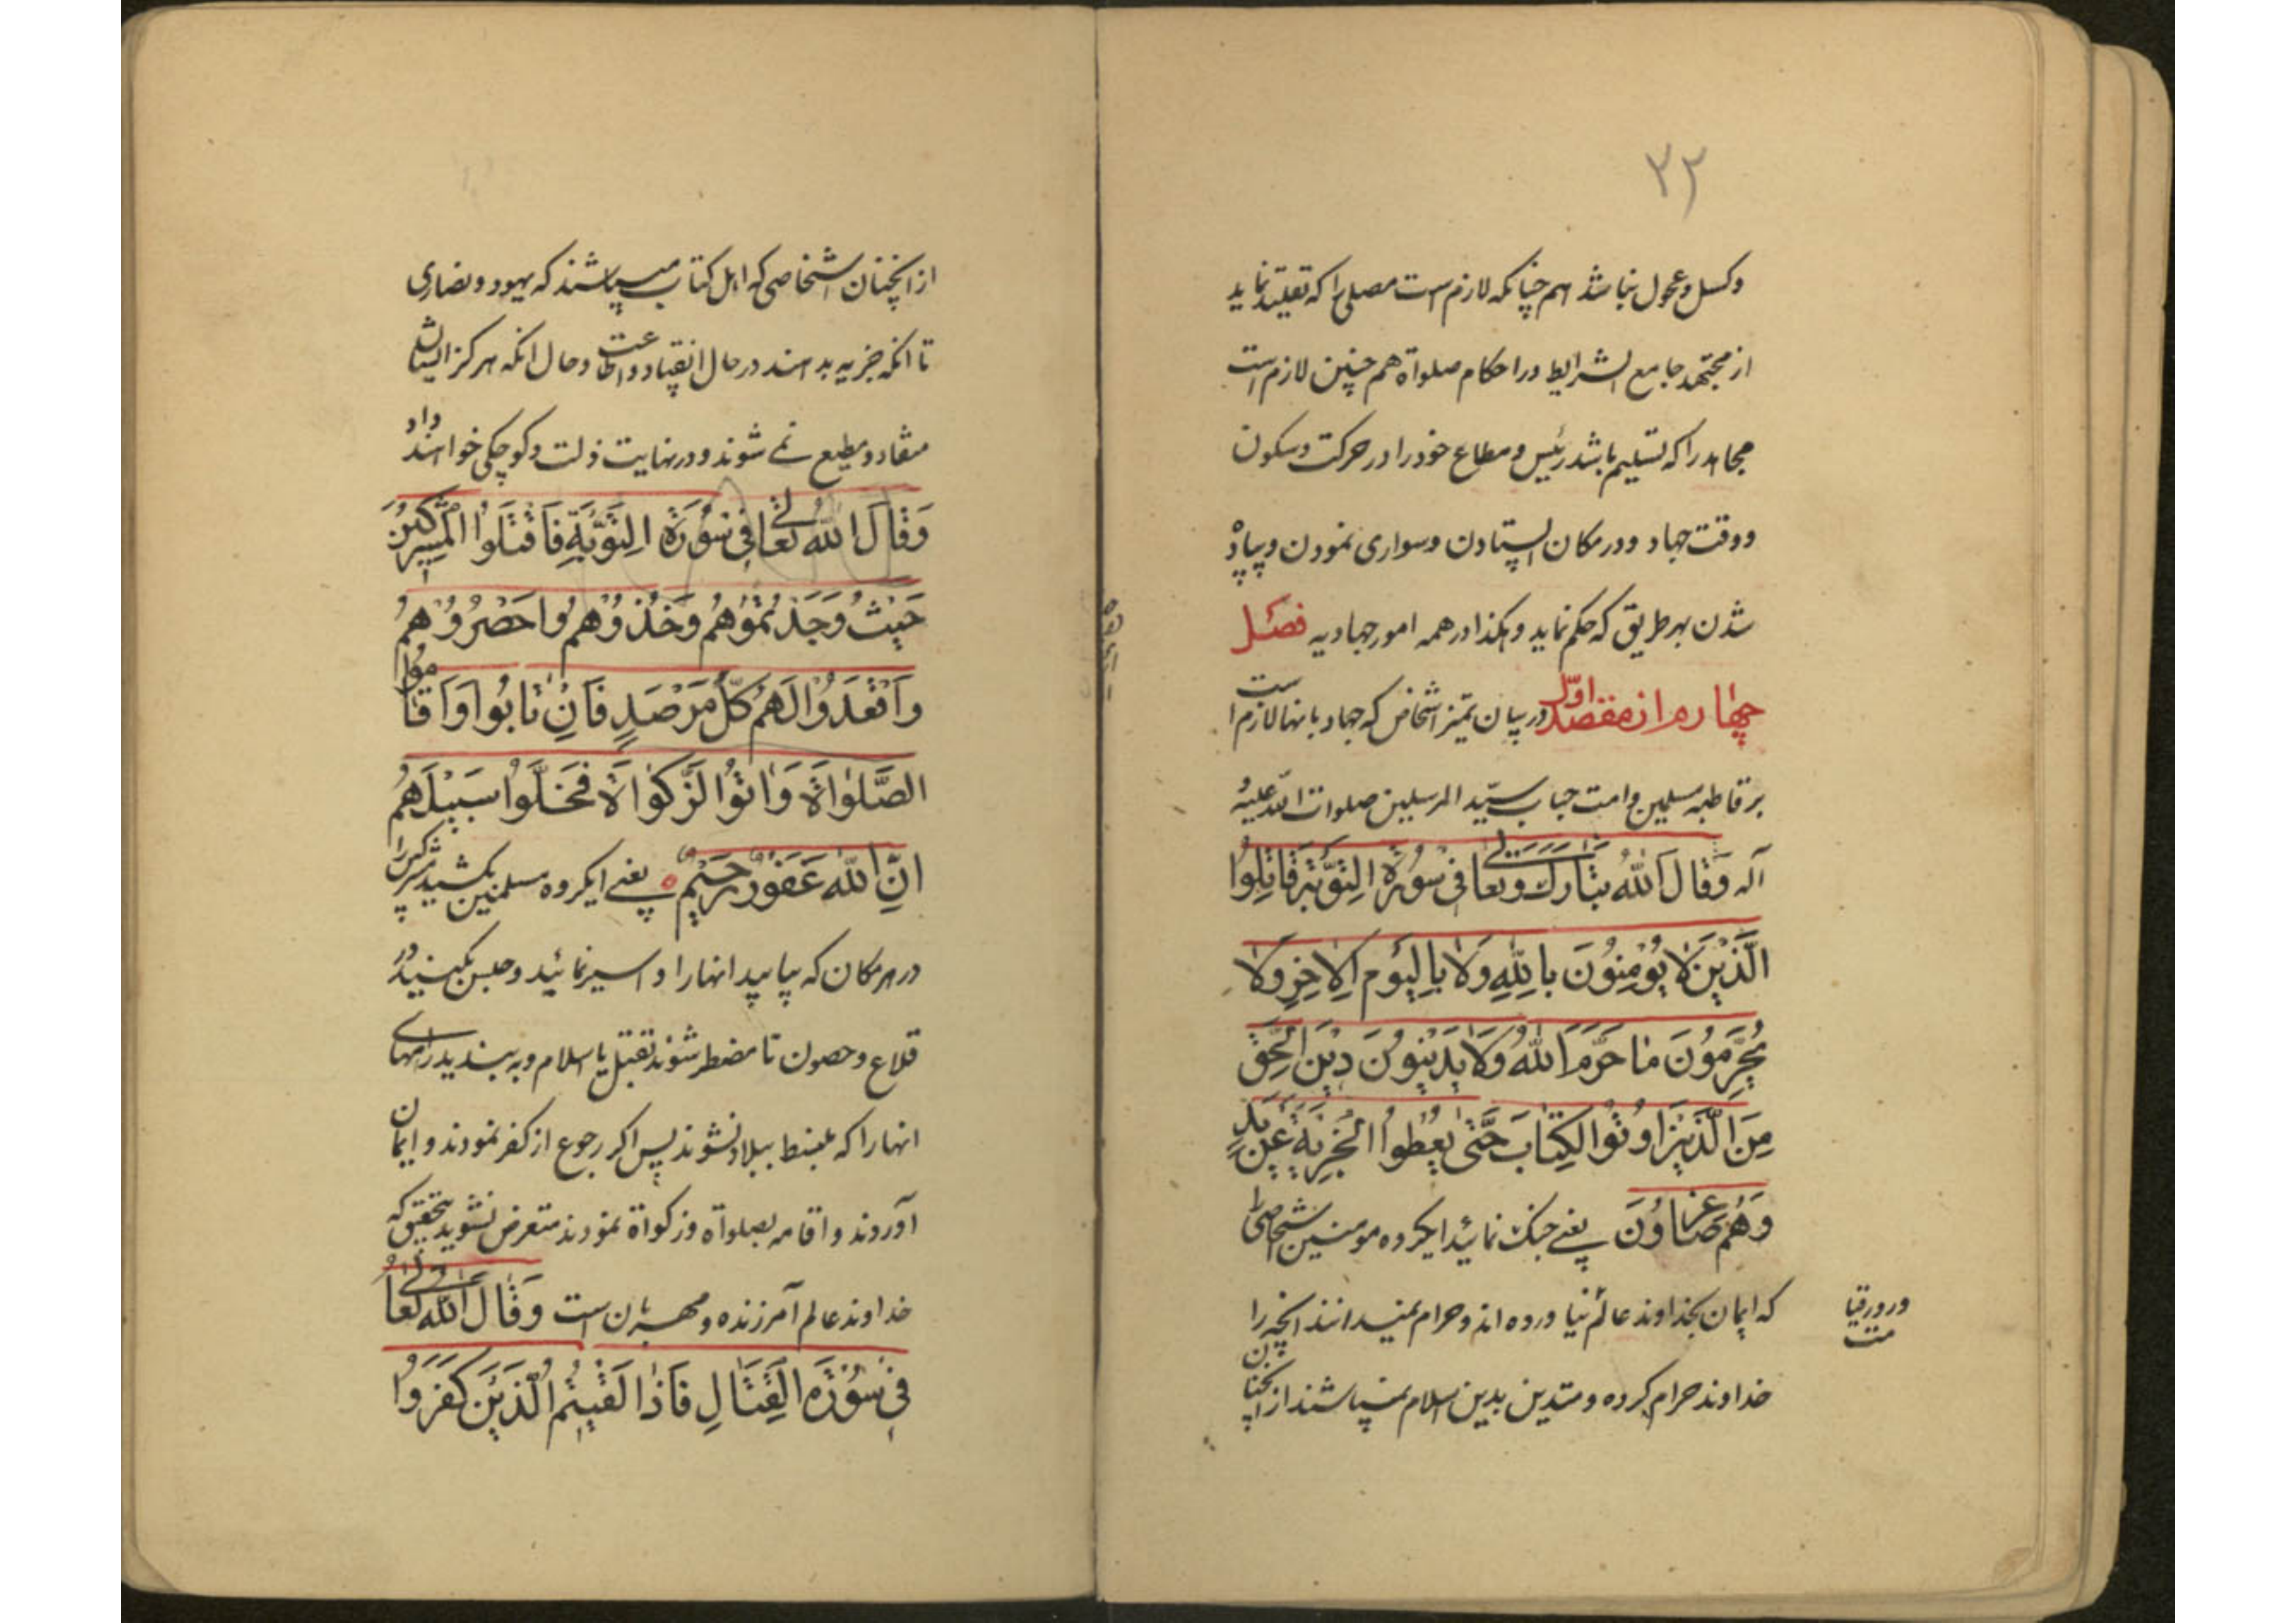 ۳۲
وکسل و عجول نباشد هم چنانکه لازم است مصلی را که تقلید نماید
از مجتهد جامع الشرایط در احکام صلواة هم چنین لازم است
مجاهد را که تسلیم باشد رئیس و مطاع خود را در حرکت و سکون
و وقت جهاد و در مکان ایستادن و سواری نمودن و پیاده
شدن بهر طریق که حکم نماید و هکذا در همه امور جهادیه فصل
چهارم از مقصد اوّل در بیان تمیز اشخاص که جهاد با نها لازم است
بر قاطبه مسلمین و امت جناب سیّد المرسلین صلوات الله علیه و
آله وَقَالَ اللهُ تَبَارَكَ وَتَعَالی فی سُورَةِ التَّوْبَةِ قَاتِلُوا
الَّذِیْنَ لَا یُوْمِنُوْنَ بِاللهِ وَلَا بِالیَوْمِ الاخِرِ وَلَا
یُحَرِّمُونَ مٰا حَرَّمَ اللهُ وَلَا یَدِیْنُوْنَ دِیْنَ الحَقِّ
مِنَ الَّذِیْنَ اُوتُوا الکِتٰابَ حَتّٰی یُعْطُوا الجِزْیَةَ عَنْ یَدٍ
وَهُمْ صٰاغِرُونَ یعنی جنک نمائید ایکروه مومنین اشخاصی را
که ایمان بخداوند عالم نیاورده اند و حرام نمیدانند انچه را
و روز قیامت
خداوند حرام کرده و متدین بدین اسلام نمیباشند از انچنان
از انچنان اشخاصی که اهل کتاب میباشند که یهود و نصاری
تا انکه جزیه بدهند در حال انقیاد و اطاعت و حال انکه هرکز ایشان
منقاد و مطیع نمے شوند و در نهایت ذلت و کوچکی خواهند داد
وَقَالَ اللهُ تَعَالی فی سُوْرَةِ التَّوْبَةِ فَاقْتُلُوا المُشْرِکِینَ
حَیْثُ وَجَدْتُمُوْهُمْ وَخُذُوْهُمْ وَاحْصُرُوْهُمْ
وَاقْعُدُوْا لَهُمْ کُلَّ مَرْصَدٍ فَاِنْ تٰابُوا وَاَقَامُوا
الصَّلوٰاةَ وَاٰتَوُا الزَّکوٰاةَ فَخَلُّوْا سَبِیْلَهُمْ
اِنَّ اللهَ غَفُوْرٌ رَحِیْمٌ ه یعنی ایکروه مسلمین بکشید مشرکین را
در هر مکان که بیابید انها را و اسیر نمائید و حبس بکنید در
قلاع و حصون تا مضطر شوند بقتل یا اسلام و به بندید راههای
انها را که منبسط ببلاد نشوند پس اکر رجوع از کفر نمودند و ایمان
آوردند و اقامه بصلواة و زکواة نمودند متعرض نشوید بتحقیق که
خداوند عالم آمرزنده و مهربان است وَقَالَ اللهُ تَعَالی
فی سُوْرَةِ القِتَالِ فَاذٰا لَقِیْتُمُ الَّذِیْنَ کَفَرُوْا